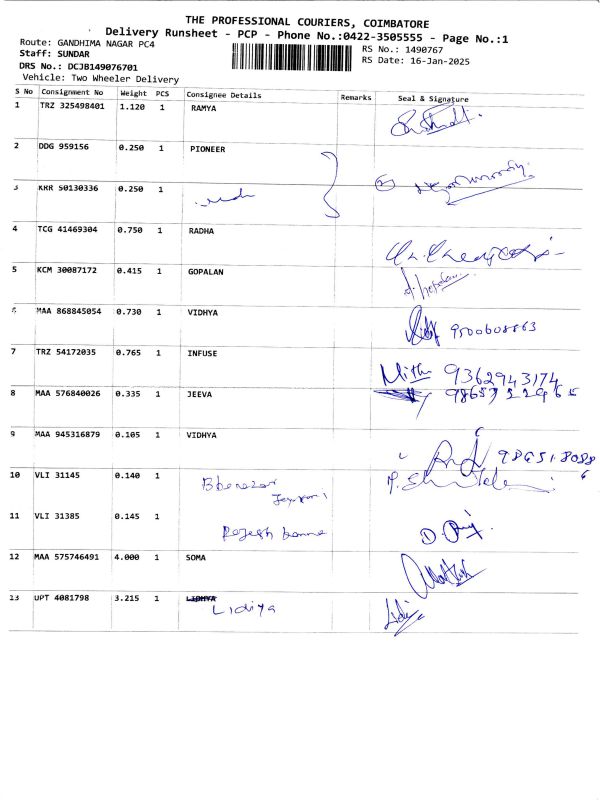 THE PROFESSIONAL COURIERS, COIMBATORE
Delivery Runsheet - PCP - Phone No.:0422-3505555 - Page No.:1
Route: GANDHIMA NAGAR PC4
RS No.: 1490767
Staff: SUNDAR
RS Date: 16-Jan-2025
DRS No.: DCJB149076701
Vehicle: Two Wheeler Delivery
S No Consignment No Weight PCS Consignee Details Remarks Seal & Signature
1 TRZ 325498401 1.120 1 RAMYA
2 DDG 959156 0.250 1 PIONEER
3 KRR 50130336 0.250 1
4 TCG 41469304 0.750 1 RADHA
5 KCM 30087172 0.415 1 GOPALAN
6 MAA 868845054 0.730 1 VIDHYA
7 TRZ 54172035 0.765 1 INFUSE
Mithu 9362943174
8 MAA 576840026 0.335 1 JEEVA
9 MAA 945316879 0.105 1 VIDHYA
10 VLI 31145 0.140 1
11 VLI 31385 0.145 1
Rajesh
12 MAA 575746491 4.000 1 SOMA
13 UPT 4081798 3.215 1 LIDHYA
Lidiya